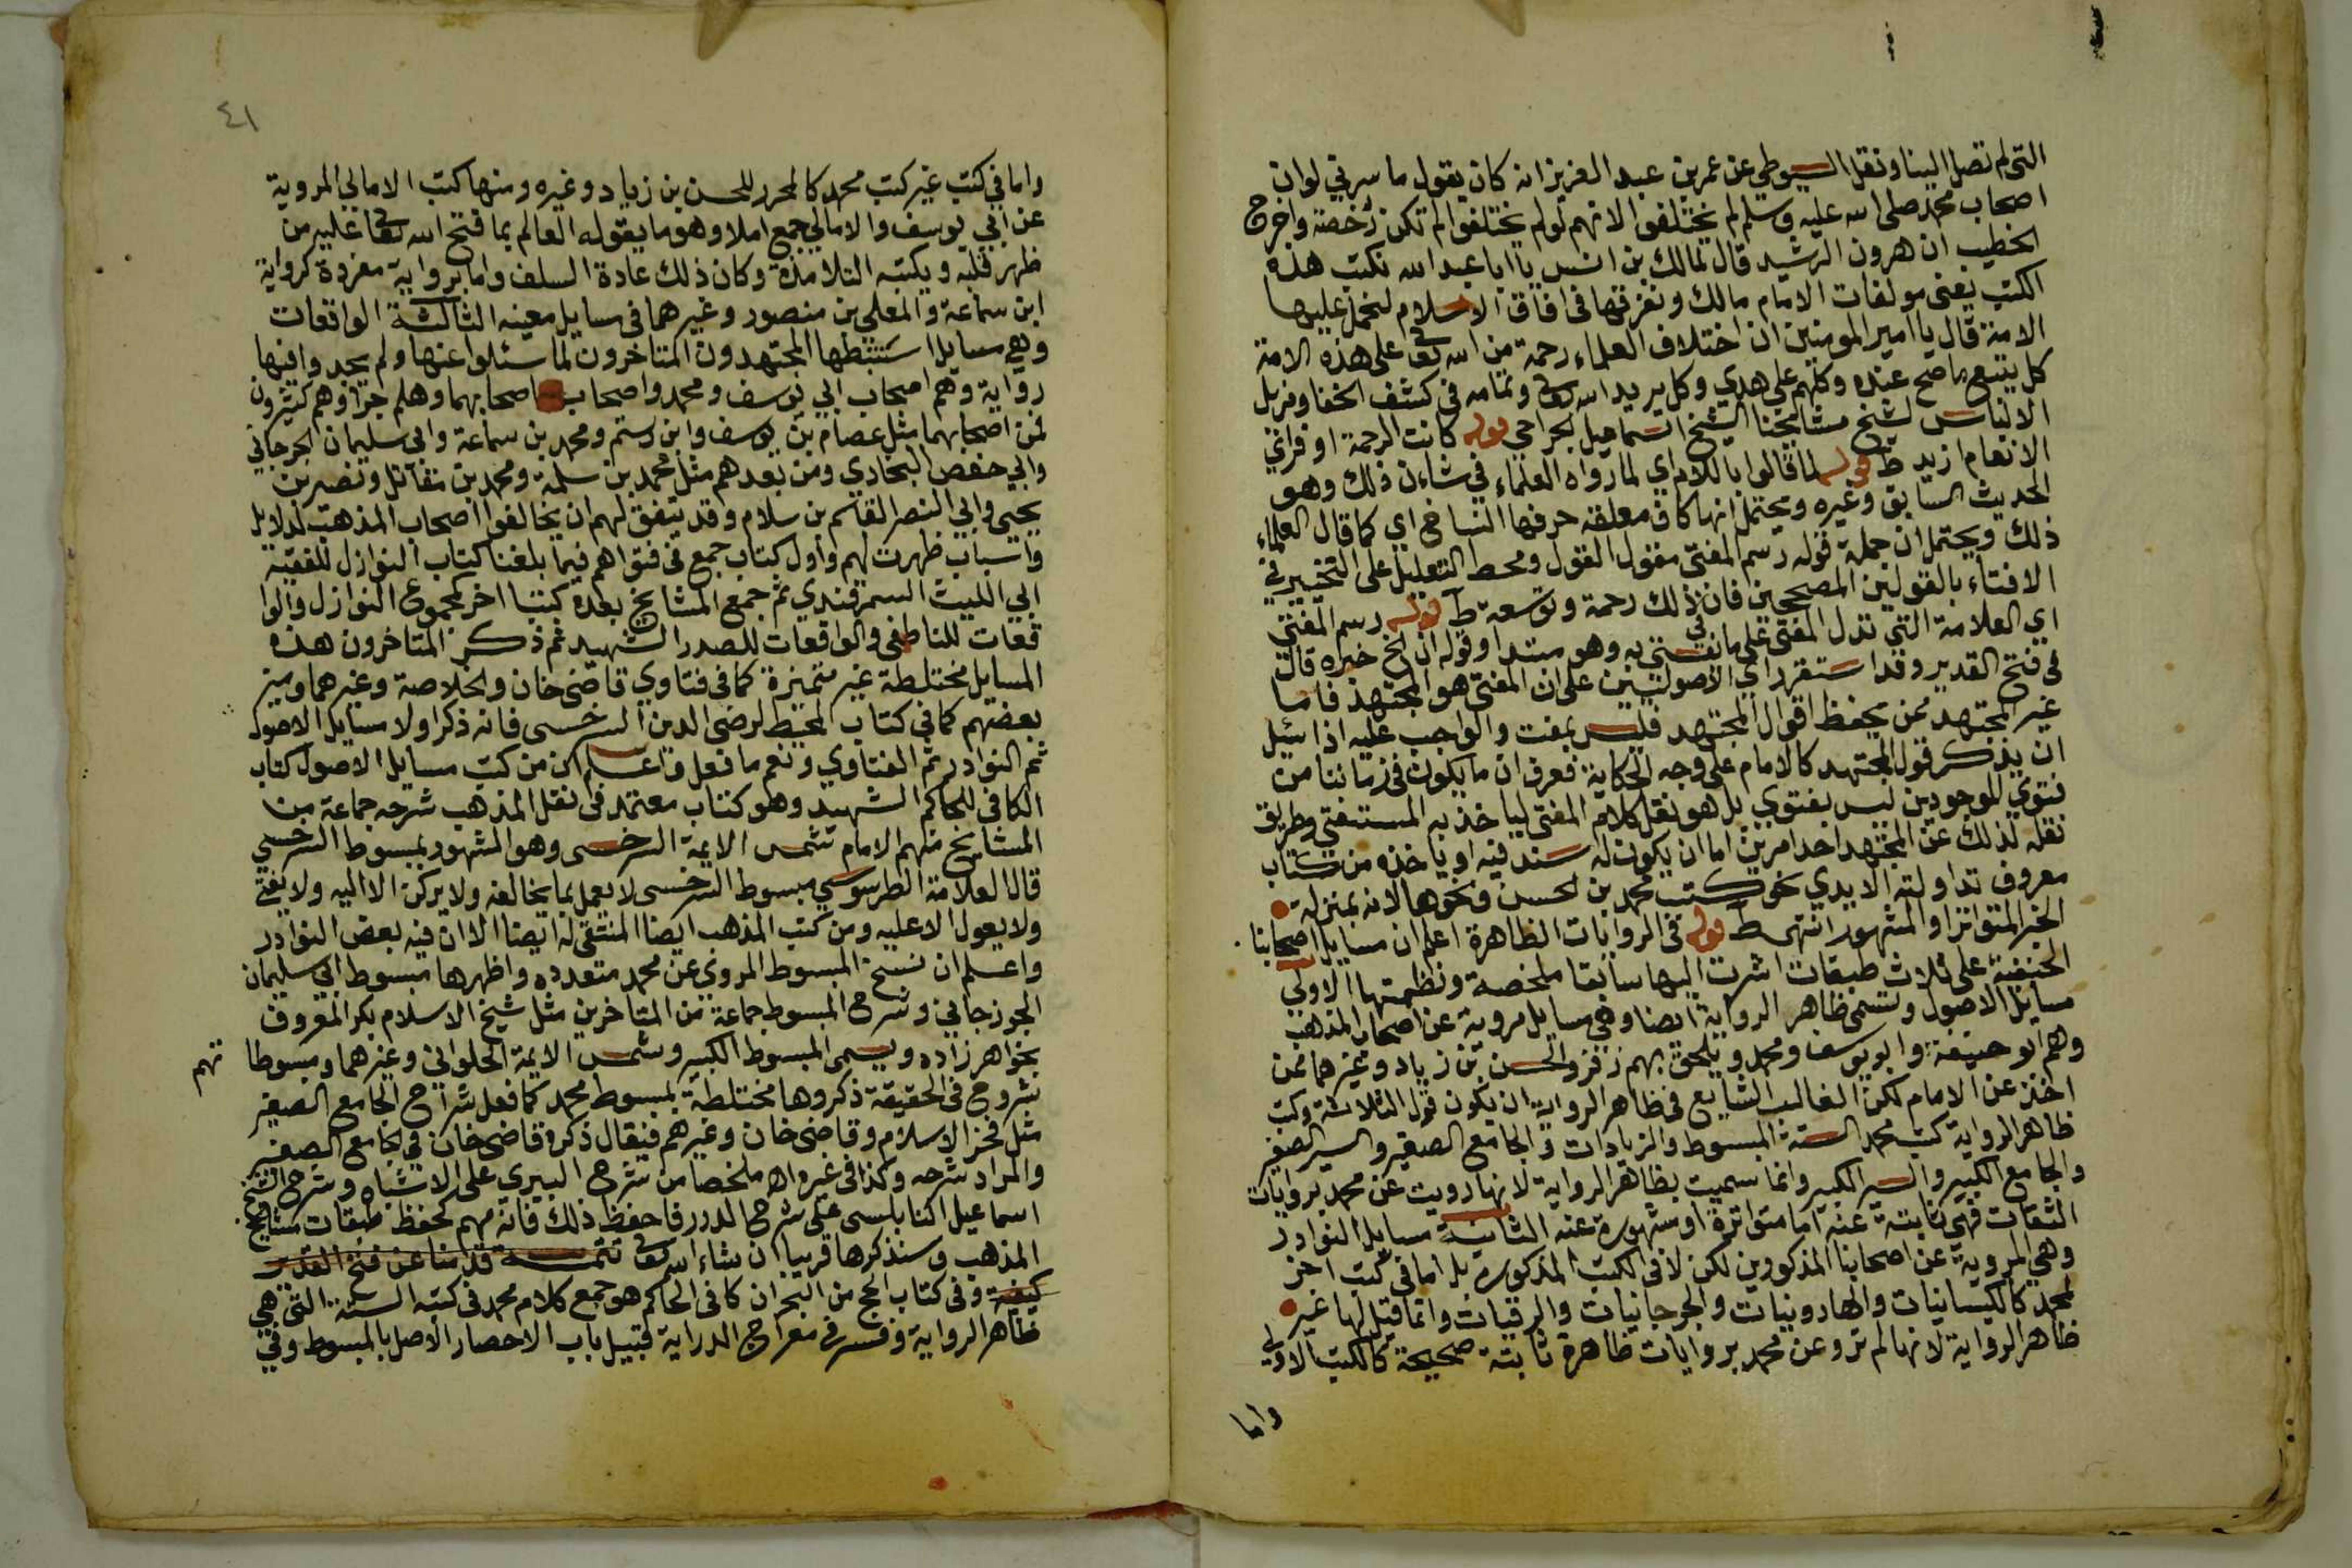 التي لم تصل الينا ونقل السيوطي عن عمر بن عبد العزيز انه كان يقول ما سرني لو ان
اصحاب محمد صلى الله عليه وسلم لم يختلفوا لانهم لو لم يختلفوا لم تكن رخصة واخرج
الخطيب ان هرون الرشيد قال لمالك بن انس يا ابا عبد الله نكتب هذه
الكتب يعني مولفات الامام مالك ونفرقها في افاق الاسلام لنحمل عليها
الامة قال يا امير المومنين ان اختلاف العلماء رحمة من الله تعا على هذه الامة
كل يتبع ما صح عنده وكلهم على هدي وكل يريد الله تعا وتمامه في كشف الخفا ومزيل
الالباس لشيخ مشايخنا الشيخ اسماعيل الجراحي قوله كانت الرحمة اوفر اي
الانعام ازيد ط قوله لما قالوا باللام اي لما رواه العلماء في شان ذلك وهو
الحديث السابق وغيره ويحتمل انها كاف معلقة حرفها النساخ اي كما قال العلماء
ذلك ويحتمل ان جملة قوله رسم المفتي مقول القول ومحط التعليل على التخيير في
الافتاء بالقولين المصححين فان ذلك رحمة وتوسعة ط قوله رسم المفتي
اي العلامة التي تدل المفتي على ما يفتي به وهو مبتدا وقوله ان الخ خبره قال
في فتح القدير وقد استقر راي الاصوليين على ان المفتي هو المجتهد فاما
غير المجتهد ممن يحفظ اقوال المجتهد فليس بمفت والواجب عليه اذا سئل
ان يذكر قول المجتهد كالامام على وجه الحكاية فعرف ان ما يكون في زماننا من
فتوي الموجودين ليس بفتوي بل هو نقل كلام المفتي لياخذ به المستفتي وطريق
نقله لذلك عن المجتهد احد امرين اما ان يكون له سند فيه او ياخذه من كتاب
معروف تداولته الايدي نحو كتب محمد بن الحسن ونحوها لانه بمنزلة
الخبر المتواتر او المشهور انتهى ط قوله في الروايات الظاهرة اعلم ان مسايل اصحابنا
الحنفية على ثلاث طبقات اشرت اليها سابقا ملخصة ونظمتها الاولي
مسايل الاصول وتسمى ظاهر الرواية ايضا وهي مسايل مروية عن اصحاب المذهب
وهم ابو حنيفة وابو يوسف ومحمد ويلحق بهم زفر والحسن بن زياد وغيرهما ممن
اخذ عن الامام لكن الغالب الشايع في ظاهر الرواية ان يكون قول الثلاثة وكتب
ظاهر الرواية كتب محمد الستة المبسوط والزيادات والجامع الصغير والسير الصغير
والجامع الكبير والسير الكبير وانما سميت بظاهر الرواية لانها رويت عن محمد بروايات
الثقات فهي ثابتة عنه اما متواترة او مشهورة عنه الثانية مسايل النوادر
وهي المروية عن اصحابنا المذكورين لكن لا في الكتب المذكورة بل اما في كتب اخر
لمحمد كالكيسانيات والهارونيات والجرجانيات والرقيات وانما قيل لها غير
ظاهر الرواية لانها لم ترو عن محمد بروايات ظاهرة ثابتة صحيحة كالكتب الاولى
واما
٤١
واما في كتب غير كتب محمد كالمحرر للحسن بن زياد وغيره ومنها كتب الامالي المروية
عن ابي يوسف والامالي جمع املا وهو ما يقوله العالم بما فتح الله تعا عليه من
ظهر قلبه ويكتبه التلامذة وكان ذلك عادة السلف واما برواية مفردة كرواية
ابن سماعة والمعلي بن منصور وغيرهما في مسايل معينه الثالثة الواقعات
وهي مسايل استنبطها المجتهدون المتاخرون لما سئلوا عنها ولم يجدوا فيها
رواية وهم اصحاب ابي يوسف ومحمد واصحاب اصحابهما وهلم جرا وهم كثيرون
فمن اصحابهما مثل عصام بن يوسف وابن رستم ومحمد بن سماعة وابي سليمان الجرجاني
وابي حفص البخاري ومن بعدهم مثل محمد بن سلمة ومحمد بن مقاتل ونصر بن
يحيى وابي النصر القاسم بن سلام وقد يتفق لهم ان يخالفوا اصحاب المذهب لدلايل
واسباب ظهرت لهم واول كتاب جمع في فتواهم فيما بلغنا كتاب النوازل للفقيه
ابي الليث السمرقندي ثم جمع المشايخ بعده كتبا اخر كمجموع النوازل والوا
قعات للناطفي والواقعات للصدر الشهيد ثم ذكر المتاخرون هذه
المسايل مختلطة غير متميزة كما في فتاوي قاضي خان والخلاصة وغيرهما وميز
بعضهم كما في كتاب المحيط لرضي الدين السرخسي فانه ذكر اولا مسايل الاصول
ثم النوادر ثم الفتاوي ونعم ما فعل واعلم ان من كتب مسايل الاصول كتاب
الكافي للحاكم الشهيد وهو كتاب معتمد في نقل المذهب شرحه جماعة من
المشايخ منهم الامام شمس الايمة السرخسي وهو المشهور بمبسوط السرخسي
قال العلامة الطرسوسي مبسوط السرخسي لا يعمل بما يخالفه ولا يركن الا اليه ولا يفتي
ولا يعول الا عليه ومن كتب المذهب ايضا المنتقى له ايضا الا ان فيه بعض النوادر
واعلم ان نسخ المبسوط المروي عن محمد متعدده واظهرها مبسوط ابي سليمان
الجوزجاني وشرح المبسوط جماعة من المتاخرين مثل شيخ الاسلام بكر المعروف
بخواهر زاده ويسمى المبسوط الكبير وشمس الايمة الحلواني وغيرهما ومبسوطا
تهم
شروح في الحقيقة ذكروها مختلطة بمبسوط محمد كما فعل شراح الجامع الصغير
مثل فخر الاسلام وقاضي خان وغيرهم فيقال ذكره قاضي خان في الجامع الصغير
والمراد شرحه وكذا في غيره اه ملخصا من شرح البيري على الاشباه وشرح الشيخ
اسماعيل النابلسي على شرح الدرر فاحفظ ذلك فانه مهم كحفظ طبقات مشايخ
المذهب وسنذكرها قريبا ان شاء الله تعا تتمة قدمنا عن فتح القدير
كيفية وفي كتاب الحج من البحر ان كافي الحاكم هو جمع كلام محمد في كتبه الستة التي هي
ظاهر الرواية وفسر في معراج الدراية قبيل باب الاحصار الاصل بالمبسوط وفي